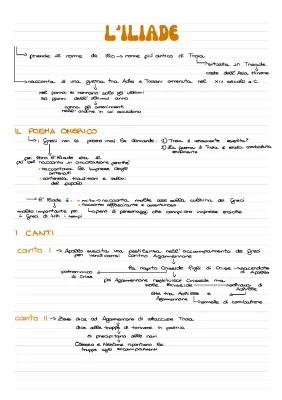 L'ILIADE
prende il nome da Ilio → nome più antico di Troia
situata in Troade
coste dell'Asia Minore
racconta di una guerra tra Achei e Troiani avvenuta nel XII secolo a.C.
nel poema si narrano solo gli ultimi
50 giorni dell'ultimo anno
narra gli avvenimenti
nell'ordine in cui accadono
IL POEMA OMERICO
i Greci non si posero mai le domande: 1) Troia è veramente esistita?
2) la guerra di Troia è stata combattuta
veramente
per loro l'Iliade era il
più bel racconto in circolazione perché
raccontava le imprese degli
antenati
conteneva tradizioni e valori
del popolo
L'Iliade è: mito → racconta molte cose sulla cultura dei Greci
racconto affascinante e avventuroso
modello importante per
i Greci di tutti i tempi
opera di personaggi che compiono imprese eroiche
I CANTI
canto I → Apollo suscita una pestilenza nell'accampamento dei Greci
per vendicarsi contro Agamennone
ha rapito Criseide figlia di Crise → sacerdote
di Apollo
patronimico
di Crise
poi Agamennone restituisce Criseide ma
vuole Briseide → schiava di
Achille
lite tra Achille e
Agamennone
smette di combattere
canto II → Zeus dice ad Agamennone di attaccare Troia
dice alle truppe di tornare in patria
si precipitano alle navi
Odisseo e Nestore riportano le
truppe agli accampamenti